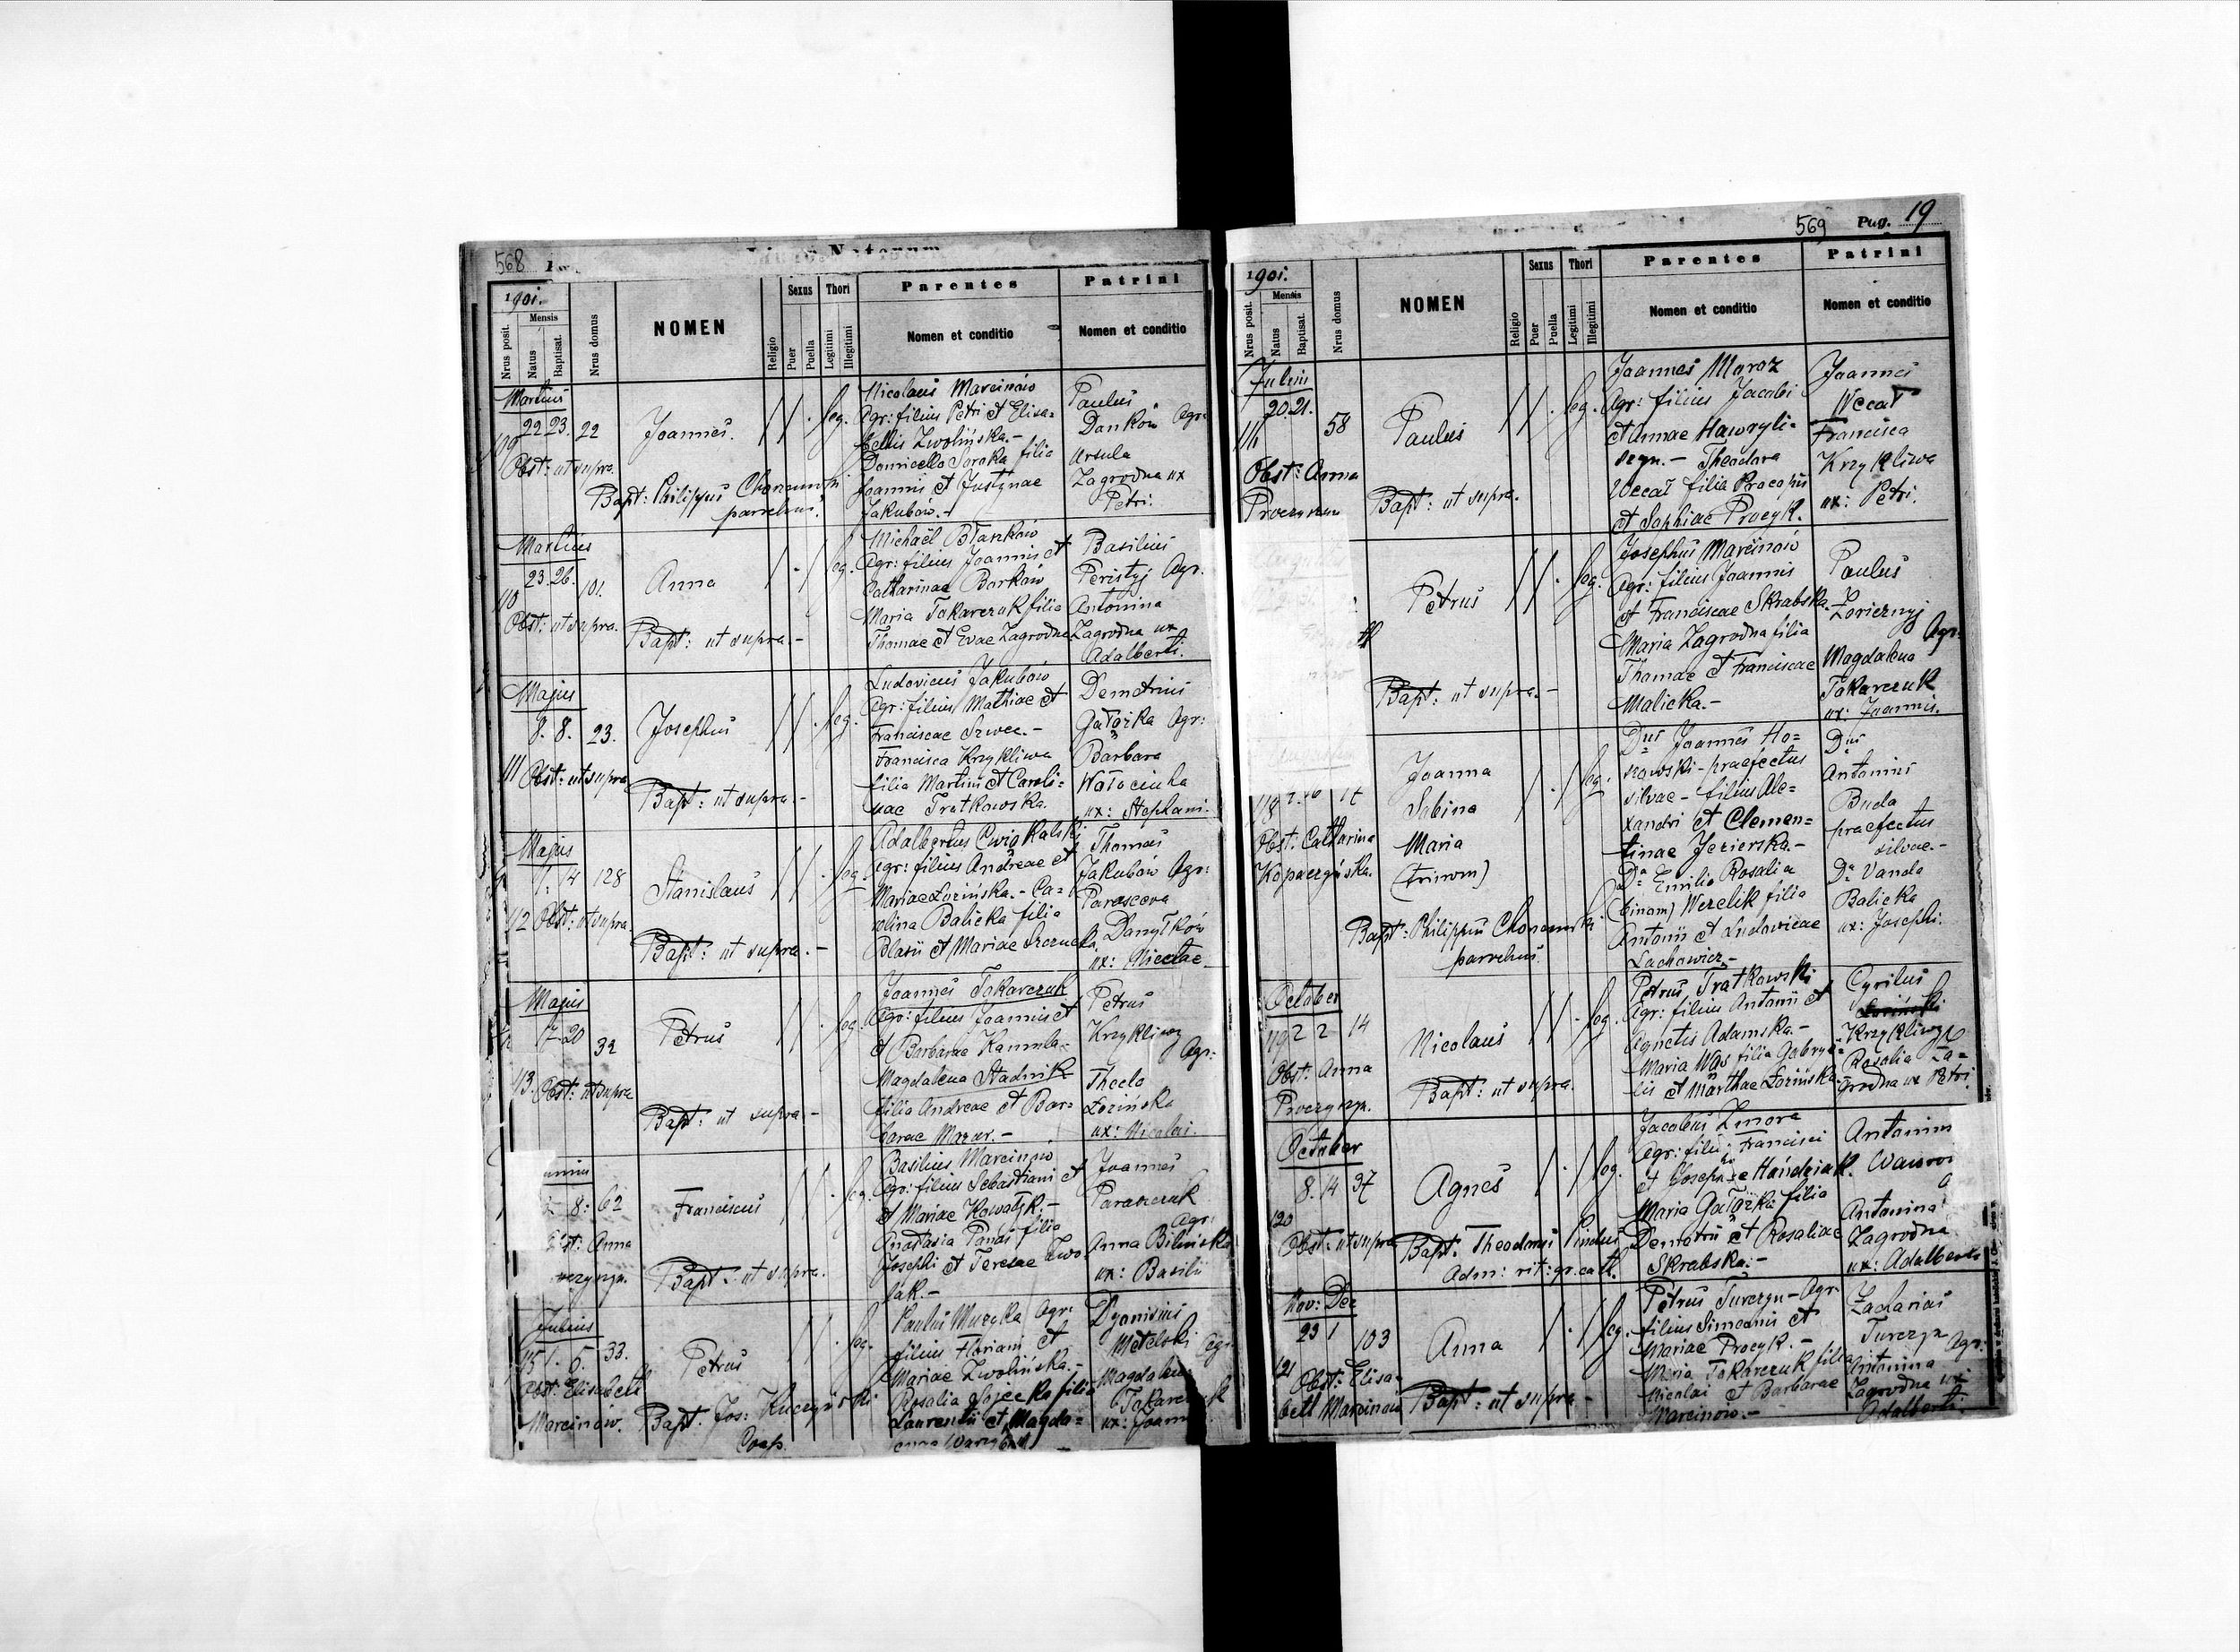 568
Liber Natorum
1901.
Nrus posit.
Mensis
Natus
Baptisat.
Nrus domus
NOMEN
Religio
Sexus
Puer
Puella
Thori
Legitimi
Illegitimi
Parentes
Nomen et conditio
Patrini
Nomen et conditio
Martius
109 22 23. 22
Obst: ut supra.
Joannes.
leg.
Bapt: Philippus
parochus.
Nicolaus Marcinów
Agr: filius Petri et Elisa=
bethis Zwolińska.-
Domicella Soroka filia
Joannis et Justynae
Jakubów.-
Paulus
Danków Agr:
Ursula
Zagrodna ux
Petri.
Martius
110 23. 26. 101.
Obst: ut supra.
Anna
leg.
Bapt: ut supra.-
Michaël Błanków
Agr: filius Joannis et
Catharinae Borków
Maria Tokarczuk filia
Thomae et Evae Zagrodna
Basilius
Peristyj Agr.
Antonina
Zagrodna ux
Adalberti.
Majus
111 8. 8. 23.
Obst: ut supra
Josephus
leg.
Bapt: ut supra.-
Ludovicus Jakubów
Agr: filius Mathiae et
Franciscae Szwec.-
Francisca Krzykliwa
filia Martini et Caroli=
nae Tratkowska.
Demetrius
Gałązka Agr:
Barbara
Wołocinha
ux: Stephani.
Majus
112 7. 14 128
Obst: ut supra
Stanislaus
leg.
Bapt: ut supra.-
Adalbertus Cwiąkalski
Agr: filius Andreae et
Mariae Łozińska.- Ca=
rolina Balicka filia
Blasii et Mariae
Thomas
Jakubów Agr:
Parasceva
Danyłków
ux: Nicolae
Majus
113. 17 20 32
Obst: ut supra
Petrus
leg.
Bapt: ut supra.-
Joannes Tokarczuk
Agr: filius Joannis et
et Barbarae Kamula=
Magdalena Stadnik
filia Andreae et Bar=
barae Mazur.-
Petrus
Krzykliwy
Agr:
Thecla
Łozińska
ux: Nicolai.
8: 62
Anna
Franciscus
leg.
Bapt: ut supra.
Basilius Marcinów
Agr: filius Sebastiani et
et Mariae Kowalyk.-
Anastasia Panas filia
Josephi et Teresae
Joannes
Paraszczuk
Agr:
Anna Bilińska
ux: Basilii
Julius
115 1. 6. 33.
Obst: Elisabeth
Marcinów.
Petrus
leg.
Bapt. Jos: Kuczyński
Coop.
Paulus Muzyka Agr:
filius Floriani et
Mariae Zwolińska.-
Rosalia Sojecka filia
Laurentii et Magda=
Dyonisius
Metelski Agr:
Magdalena
Tokarczuk
ux: Joann
569 Pag. 19
1901.
Nrus posit.
Mensis
Natus
Baptisat.
Nrus domus
NOMEN
Religio
Sexus
Puer
Puella
Thori
Legitimi
Illegitimi
Parentes
Nomen et conditio
Patrini
Nomen et conditio
Julius
116 20. 21. 58
Obst: Anna
Paulus
leg.
Bapt: ut supra.
Joannes Moroz
Agr: filius Jacobi
et Annae Hawryli=
szyn.- Theodora
Wecał filia Procopii
et Sophiae Procyk.
Joannes
Wecał
Francisca
Krzykliwa
ux: Petri.
Petrus
leg.
Bapt: ut supra.-
Josephus Marcinów
Agr: filius Joannis
et Franciscae Skrabska.
Maria Zagrodna filia
Thomae et Franciscae
Malicka.-
Paulus
Zoricznyj
Agr:
Magdalena
Tokarczuk
ux: Joannis.
118
Obst: Catharina
Joanna
Sabina
Maria
(trinom)
leg.
Bapt: Philippus
parochus.
Dnus Joannes Ho=
szowski - praefectus
silvae - filius Ale=
xandri et Clemen=
tinae Jezierska.-
Dna Emilia Rosalia
(binom) Wezelik filia
Antonii et Ludovicae
Lachowicz.-
Dnus
Antonius
Buda
praefectus
silvae.-
Dna Vanda
Balicka
ux: Josephi.
October
119 2 2 14
Obst: Anna
Nicolaus
leg.
Bapt: ut supra.
Petrus Tratkowski
Agr: filius Antonii et
Agnetis Adamska.-
Maria Wąs filia Gabryë=
lis et Marthae Łozińska
Cyrilus
Krzykliwy
Rosalia Za=
grodna ux Petri
October
120 8. 14 37
Obst: ut supra
Agnes
leg.
Bapt. Theodorus Pindus
Adm: rit: gr. cath.
Jacobus Zmora
Agr: filius Francisci
et Josephae Hańdziak.
Maria Gałązka filia
Demetrii et Rosaliae
Skrabska.-
Antonina
Zagrodna
ux: Adalberti
Nov: Dec
121 29 1 103
Obst: Elisa=
beth Marcinów
Anna
leg.
Bapt: ut supra -
Petrus Turczyn - Agr.
filius Simeonis et
Mariae Procyk.-
Maria Tokarczuk filia
Nicolai et Barbarae
Marcinów.-
Zacharias
Turczyn Agr:
Antonina
Zagrodna ux
Adalberti.